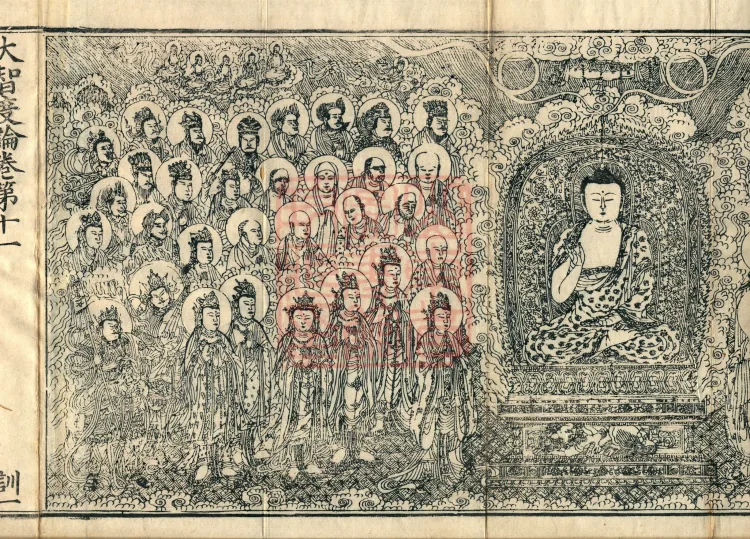 大智度論卷第十一
訓一